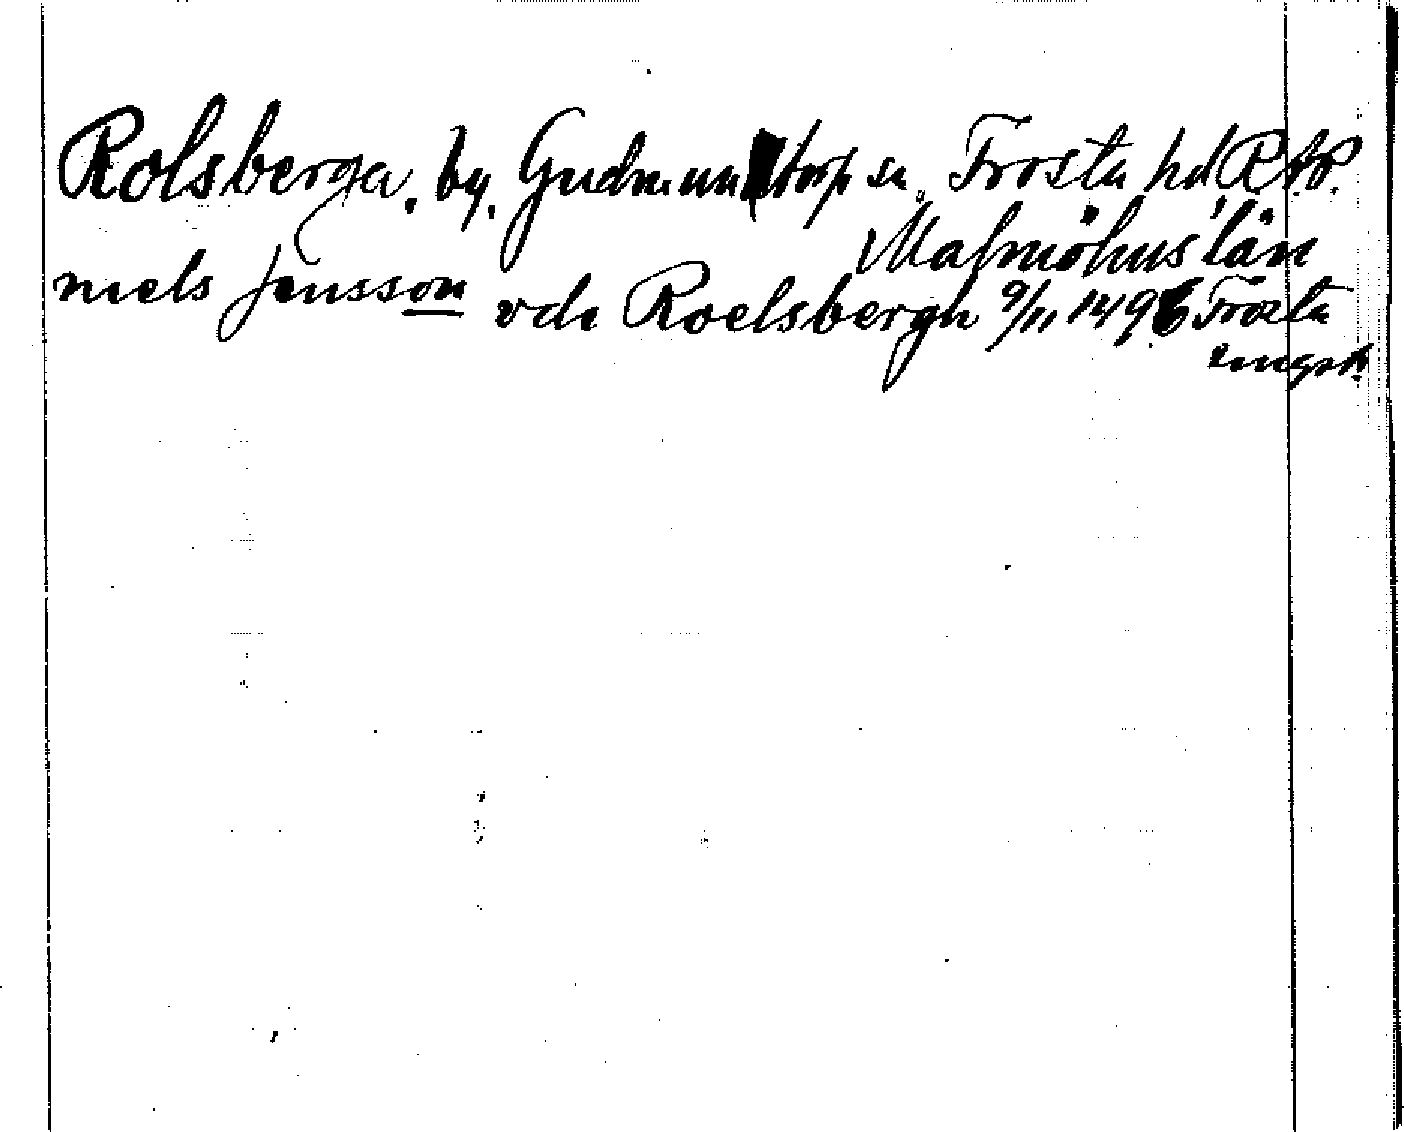 Rolsberga. by. Gudmuntorp sn. Frosta hd R.A.P.
Malmöhus län
niels Jensson vdi Roelsbergh 9/11 1496 Frosta
tingsh.